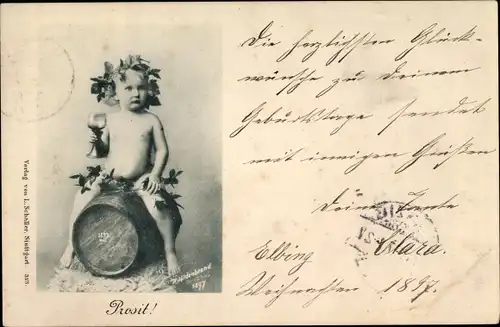 Die herzlichsten Glück-
wünsche zu Deinem
Geburtstage sendet
mit innigen Grüßen
Deine Tante
Clara.
Elbing
Weihnachten 1897.
Verlag von L. Schaller, Stuttgart
1897
Prosit!